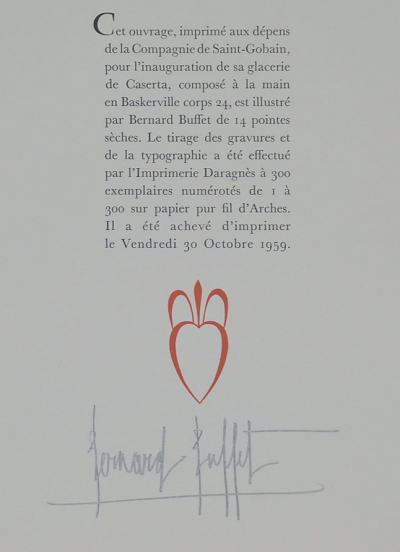 Cet ouvrage, imprimé aux dépens
de la Compagnie de Saint-Gobain,
pour l'inauguration de sa glacerie
de Caserta, composé à la main
en Baskerville corps 24, est illustré
par Bernard Buffet de 14 pointes
sèches. Le tirage des gravures et
de la typographie a été effectué
par l'Imprimerie Daragnès à 300
exemplaires numérotés de 1 à
300 sur papier pur fil d'Arches.
Il a été achevé d'imprimer
le Vendredi 30 Octobre 1959.
Bernard Buffet